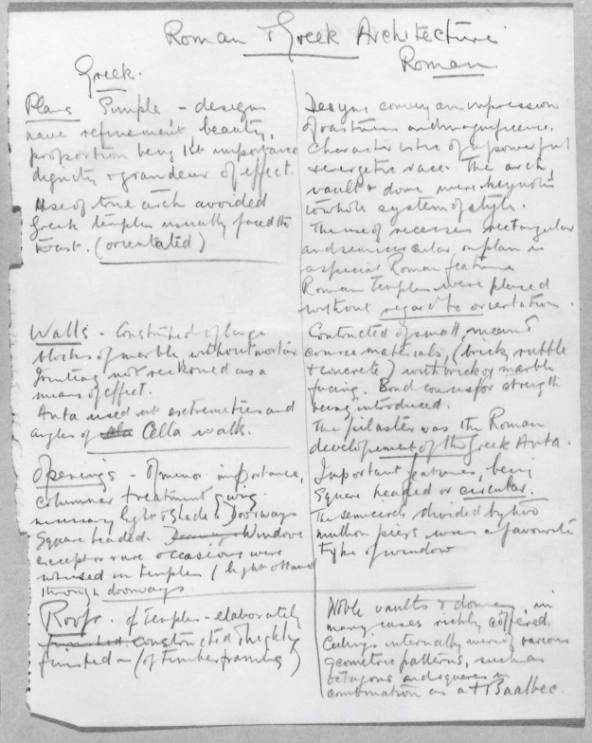 Roman & Greek Architecture
Greek.
Plans Simple - designs
have refinement beauty,
proportion being 1st importance
dignity & grandeur of effect.
Use of true arch avoided
Greek temples usually faced the
East. (orientated)
Walls - Constructed of large
blocks of marble without mortar
Jointing not reckoned as a
means of effect.
Anta used at extremities and
angles of Cella walls.
Openings - Of minor importance,
columnar treatment giving
necessary light & shade. Doorways
Square headed. Windows
except on rare occasions were
not used in temples (light obtained
through doorways
Roofs. of temples - elaborately
constructed & highly
finished - (of timber framing)
Roman
Designs convey an impression
of vastness and magnificence,
characteristic of a powerful
& energetic race. The arch,
vault & dome were keynotes
to whole system of style.
The use of recesses rectangular
and semicircular on plan is
a special Roman feature
Roman temples were placed
without regard to orientation.
Contructed of small, mean &
coarse materials, (brick, rubble
& concrete) with brick or marble
facing. Bond courses for strength
being introduced.
The pilaster was the Roman
developement of the Greek Anta.
Important features, being
Square headed or circular.
The semicircle divided by two
mullion piers was a favourite
type of window
Noble vaults & domes, in
many cases richly coffered.
Ceilings internally were of various
geometric patterns, such as
octagons and squares in
combination as at Baalbec.